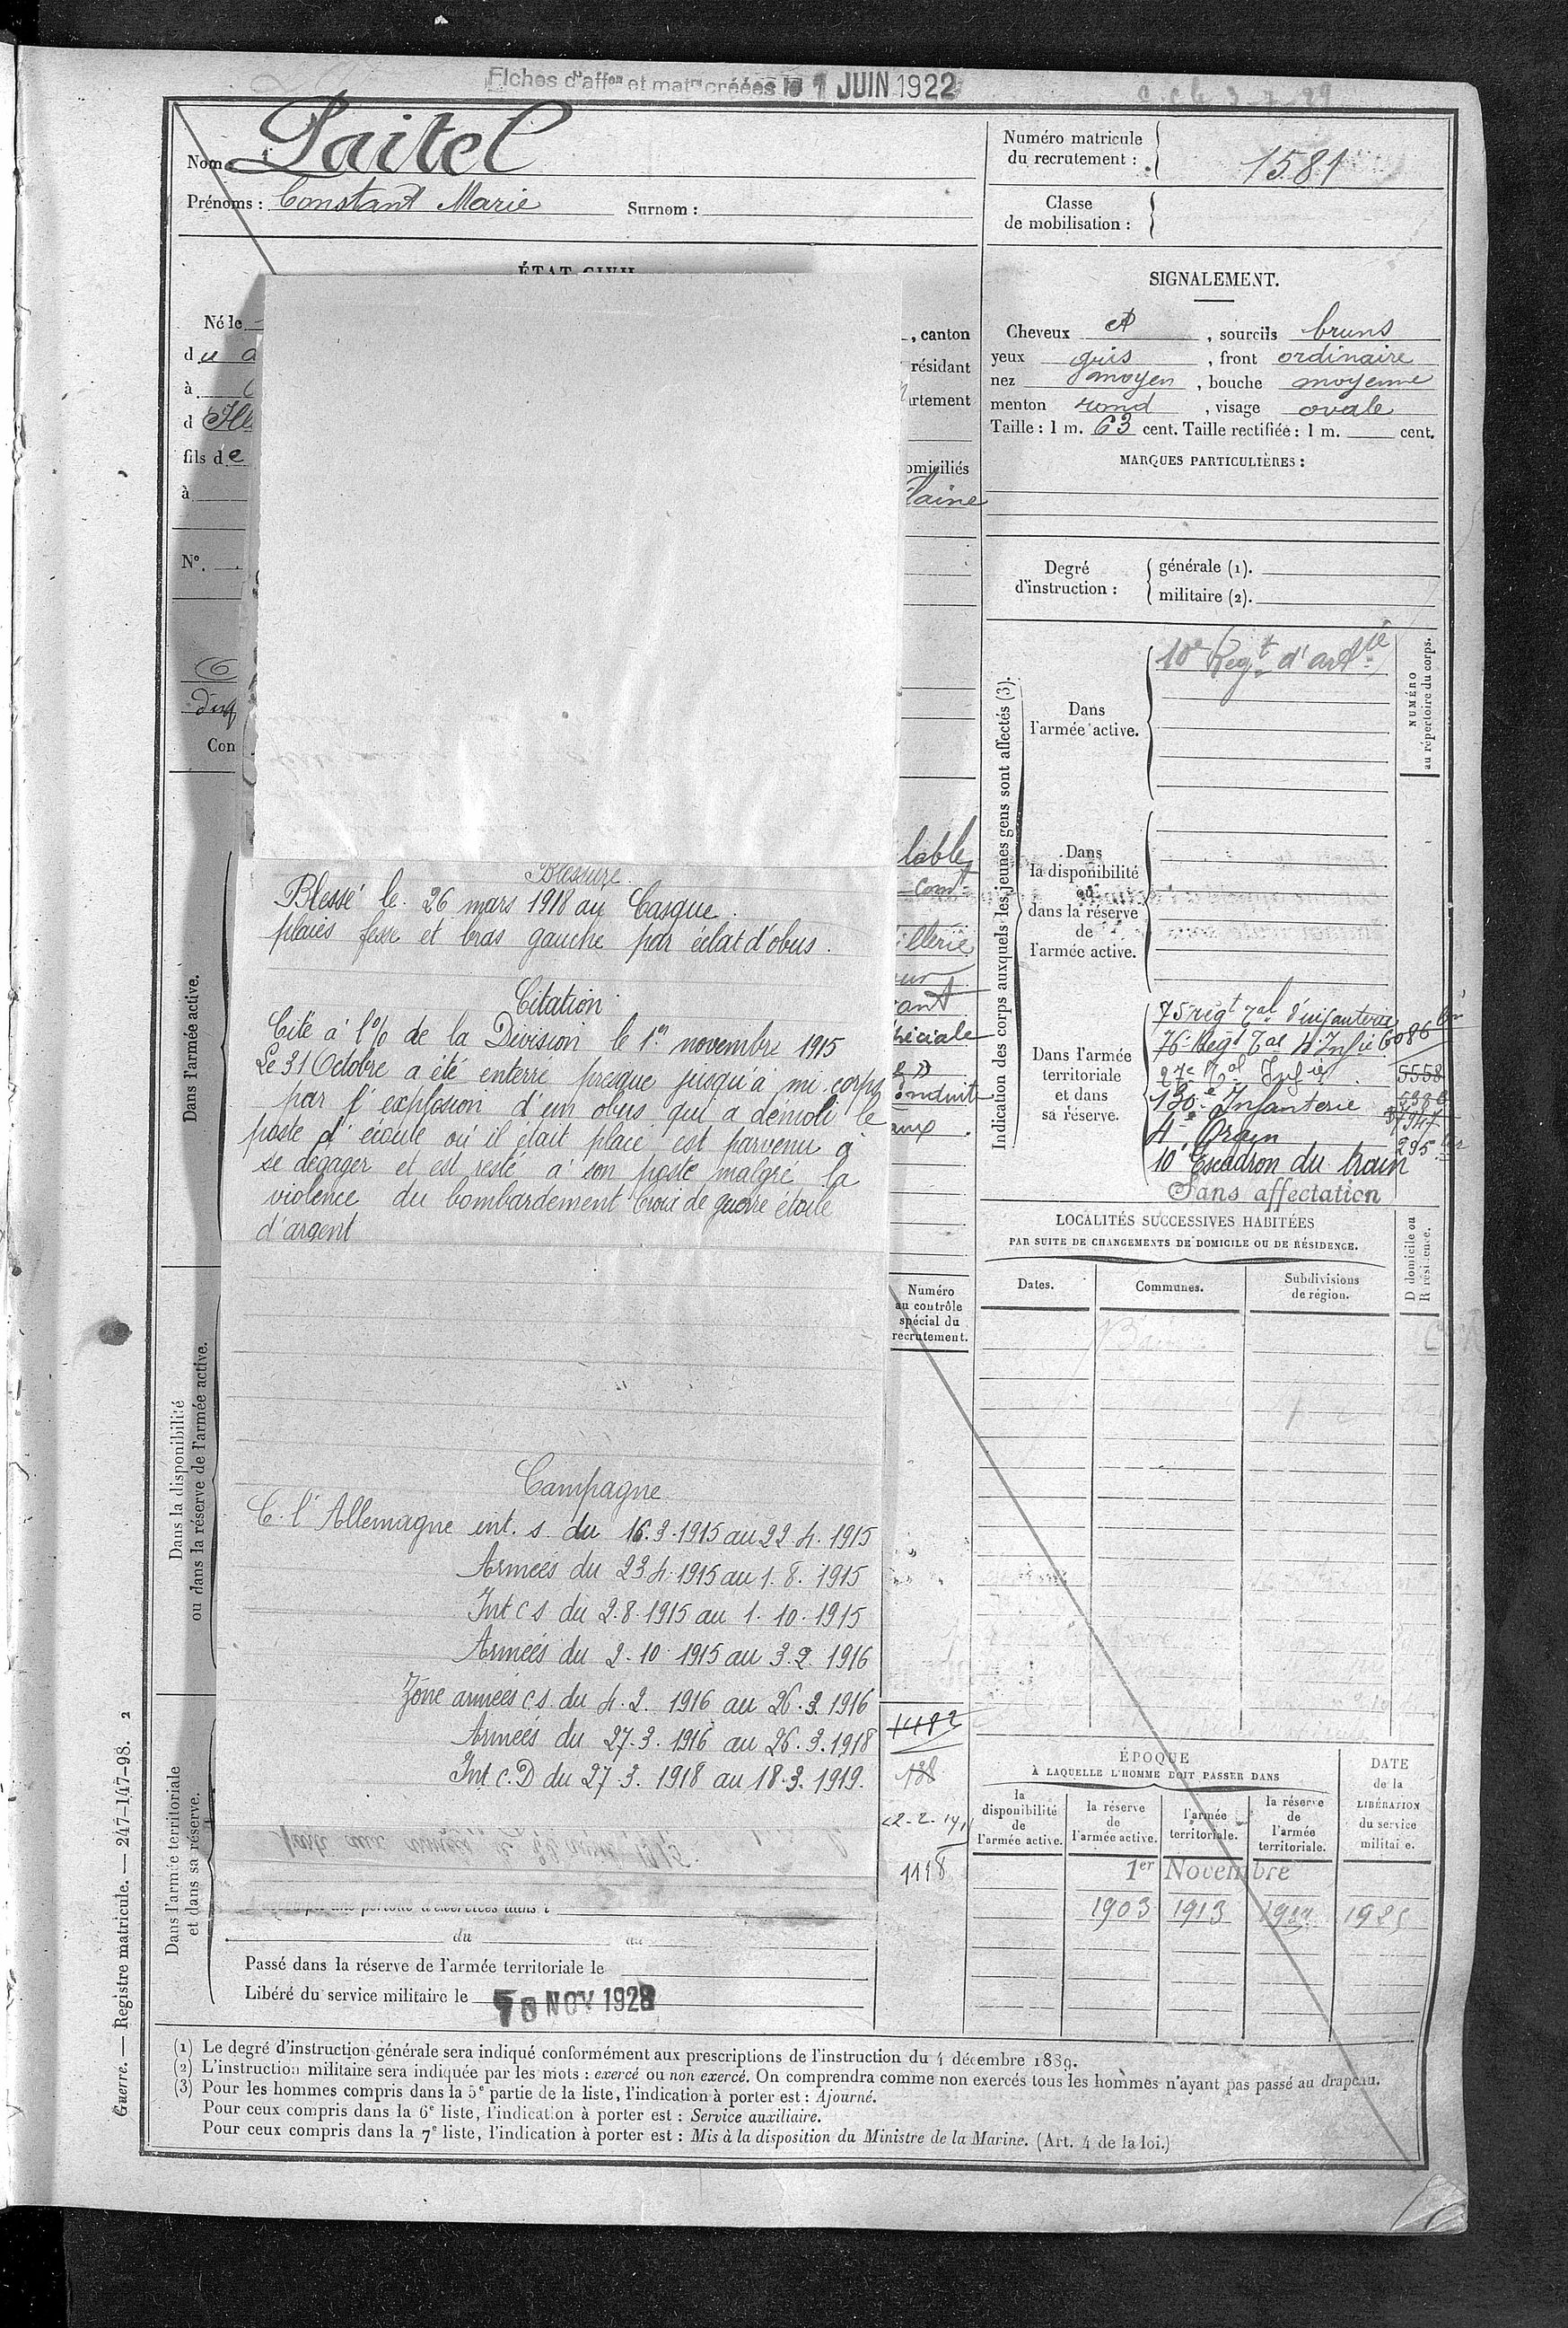 Fiches d'affon et matr créées le 1 JUIN 1922
Nom : Paitel
Prénoms : Constant Marie Surnom :
Numéro matricule
du recrutement : 1581
Classe
de mobilisation :
ÉTAT CIVIL
Né le
du
à
d
fils de
à
N°.
Con
, canton
résidant
artement
omiciliés
laine
SIGNALEMENT.
Cheveux , sourcils bruns
yeux gris , front ordinaire
nez moyen , bouche moyenne
menton rond , visage ovale
Taille : 1 m. 63 cent. Taille rectifiée : 1 m. cent.
MARQUES PARTICULIÈRES :
Degré
d'instruction :
générale (1).
militaire (2).
Indication des corps auxquels les jeunes gens sont affectés (3).
NUMÉRO
au répertoire du corps.
Dans
l'armée active.
10e Regt d'artie
Dans
la disponibilité
ou
dans la réserve
de
l'armée active.
Dans l'armée
territoriale
et dans
sa réserve.
75 regt Tal d'infanterie
76e Regt Tal d'Infie 6086
27e Tal Infie 5558
130e Infanterie
4e Train
10e Escadron du train
295
Sans affectation
Dans l'armée active.
Blessure
Blessé le 26 mars 1918 au Casque.
plaies fesse et bras gauche par éclat d'obus.
Citation
Cité à l'% de la Division le 1er novembre 1915
Le 31 Octobre a été enterré presque jusqu'à mi-corps
par l'explosion d'un obus qui a démoli le
poste d'écoute où il était placé est parvenu à
se dégager et est resté à son poste malgré la
violence du bombardement Croix de guerre étoile
d'argent
Campagne
C. l'Allemagne int. s. du 16.3.1915 au 22.4.1915
Armées du 23.4.1915 au 1.8.1915
Int c s du 2.8.1915 au 1.10.1915
Armées du 2.10.1915 au 3.2.1916
Zone armées c.s. du 4.2.1916 au 26.3.1916
Armées du 27.3.1916 au 26.3.1918
Int c.D du 27.3.1918 au 18.3.1919.
Numéro
au contrôle
spécial du
recrutement.
1118
LOCALITÉS SUCCESSIVES HABITÉES
PAR SUITE DE CHANGEMENTS DE DOMICILE OU DE RÉSIDENCE.
D domicile ou
R résidence.
Dates. Communes. Subdivisions
de région.
Dans la disponibilité
ou dans la réserve de l'armée active.
Dans l'armée territoriale
et dans sa réserve.
du au
Passé dans la réserve de l'armée territoriale le
Libéré du service militaire le 10 NOV 1928
ÉPOQUE
À LAQUELLE L'HOMME DOIT PASSER DANS
la
disponibilité
de
l'armée active.
la réserve
de
l'armée active.
l'armée
territoriale.
la réserve
de
l'armée
territoriale.
DATE
de la
LIBÉRATION
du service
militaire.
1er Novembre
1903 1913
Guerre. — Registre matricule. — 247-147-98. 2
(1) Le degré d'instruction générale sera indiqué conformément aux prescriptions de l'instruction du 4 décembre 1889.
(2) L'instruction militaire sera indiquée par les mots : exercé ou non exercé. On comprendra comme non exercés tous les hommes n'ayant pas passé au drapeau.
(3) Pour les hommes compris dans la 5e partie de la liste, l'indication à porter est : Ajourné.
Pour ceux compris dans la 6e liste, l'indication à porter est : Service auxiliaire.
Pour ceux compris dans la 7e liste, l'indication à porter est : Mis à la disposition du Ministre de la Marine. (Art. 4 de la loi.)